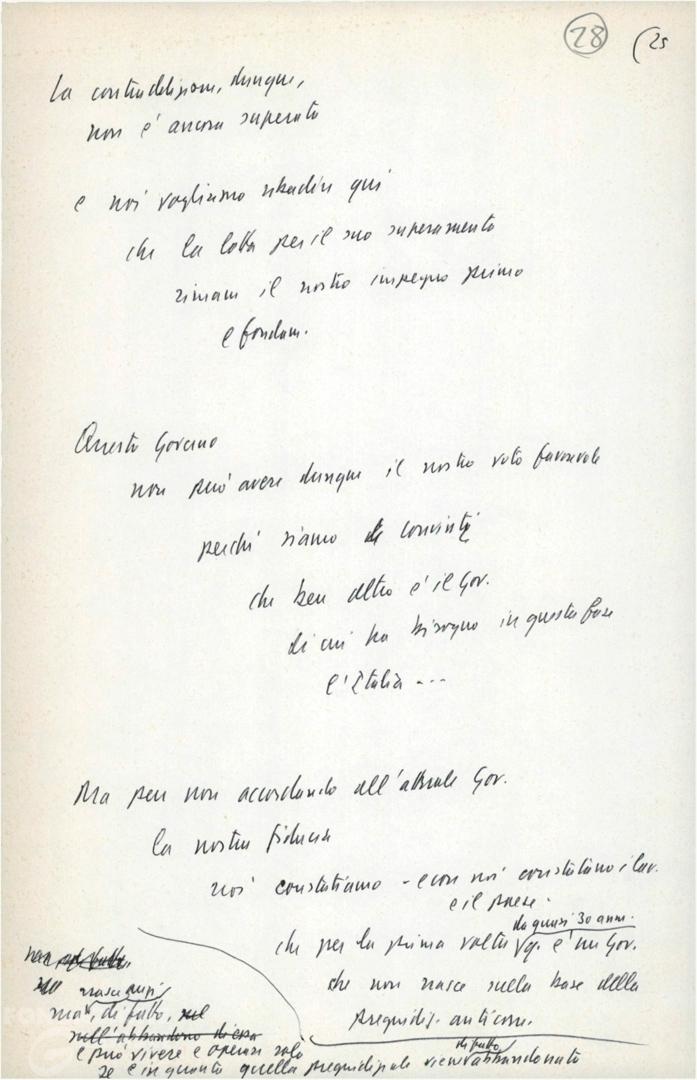 28 (25
La contraddizione, dunque,
non è ancora superata
e noi vogliamo ribadire qui
che la lotta per il suo superamento
rimane il nostro impegno primo
e fondam.
Questo Governo
non può avere dunque il nostro voto favorevole
perché siamo convinti
che ben altro è il Gov.
di cui ha bisogno in questa fase
l'Italia ---
Ma pur non accordando all'attuale Gov.
la nostra fiducia
noi constatiamo - e con noi constatano i lav.
e il paese -
da quasi 30 anni.
che per la prima volta c'è un Gov.
che non nasce sulla base della
pregiudiz. anticom.
nasce anzi,
ma, di fatto,
sull'abbandono di essa
e può vivere e operare solo
di fatto
se e in quanto quella pregiudiziale viene abbandonata